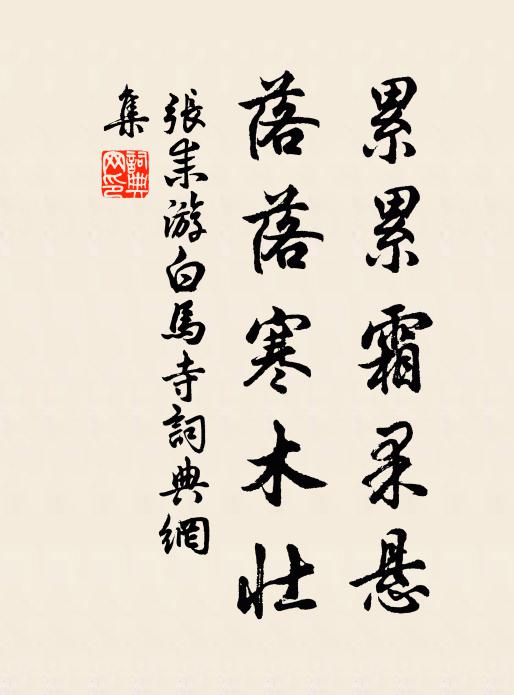 累累霜果悬
落落寒木壮
張耒游白馬寺詞典網
集
詞典网印